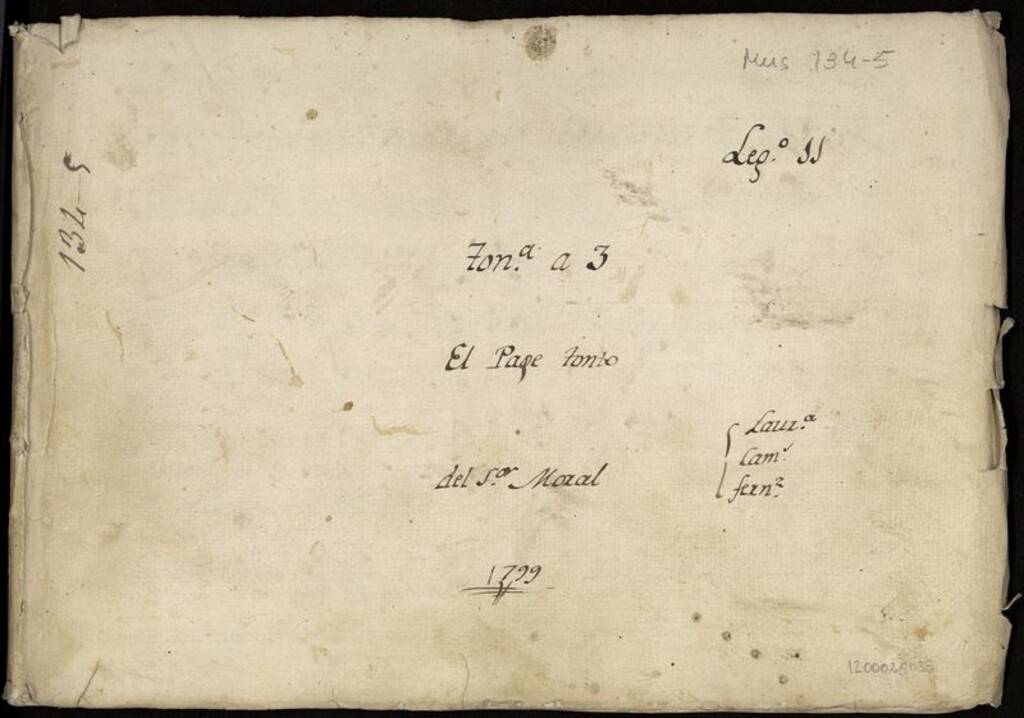 Mus 134-5
Leg.º 11
134-5
Ton.ª a 3
El Page tonto
del S.ºr Moral
Laur.ª
Cam.s
fern.z
1799